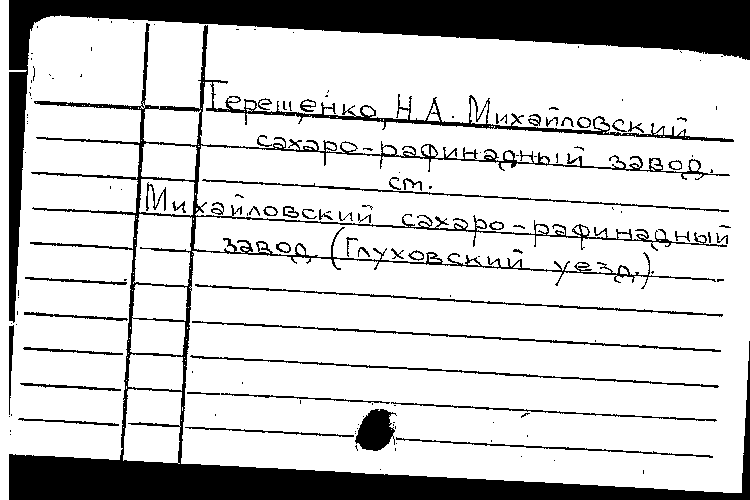 Терещенко, Н.А. Михайловский
сахаро-рафинадный завод.
см.
Михайловский сахаро-рафинадный
завод (Глуховский уезд.)